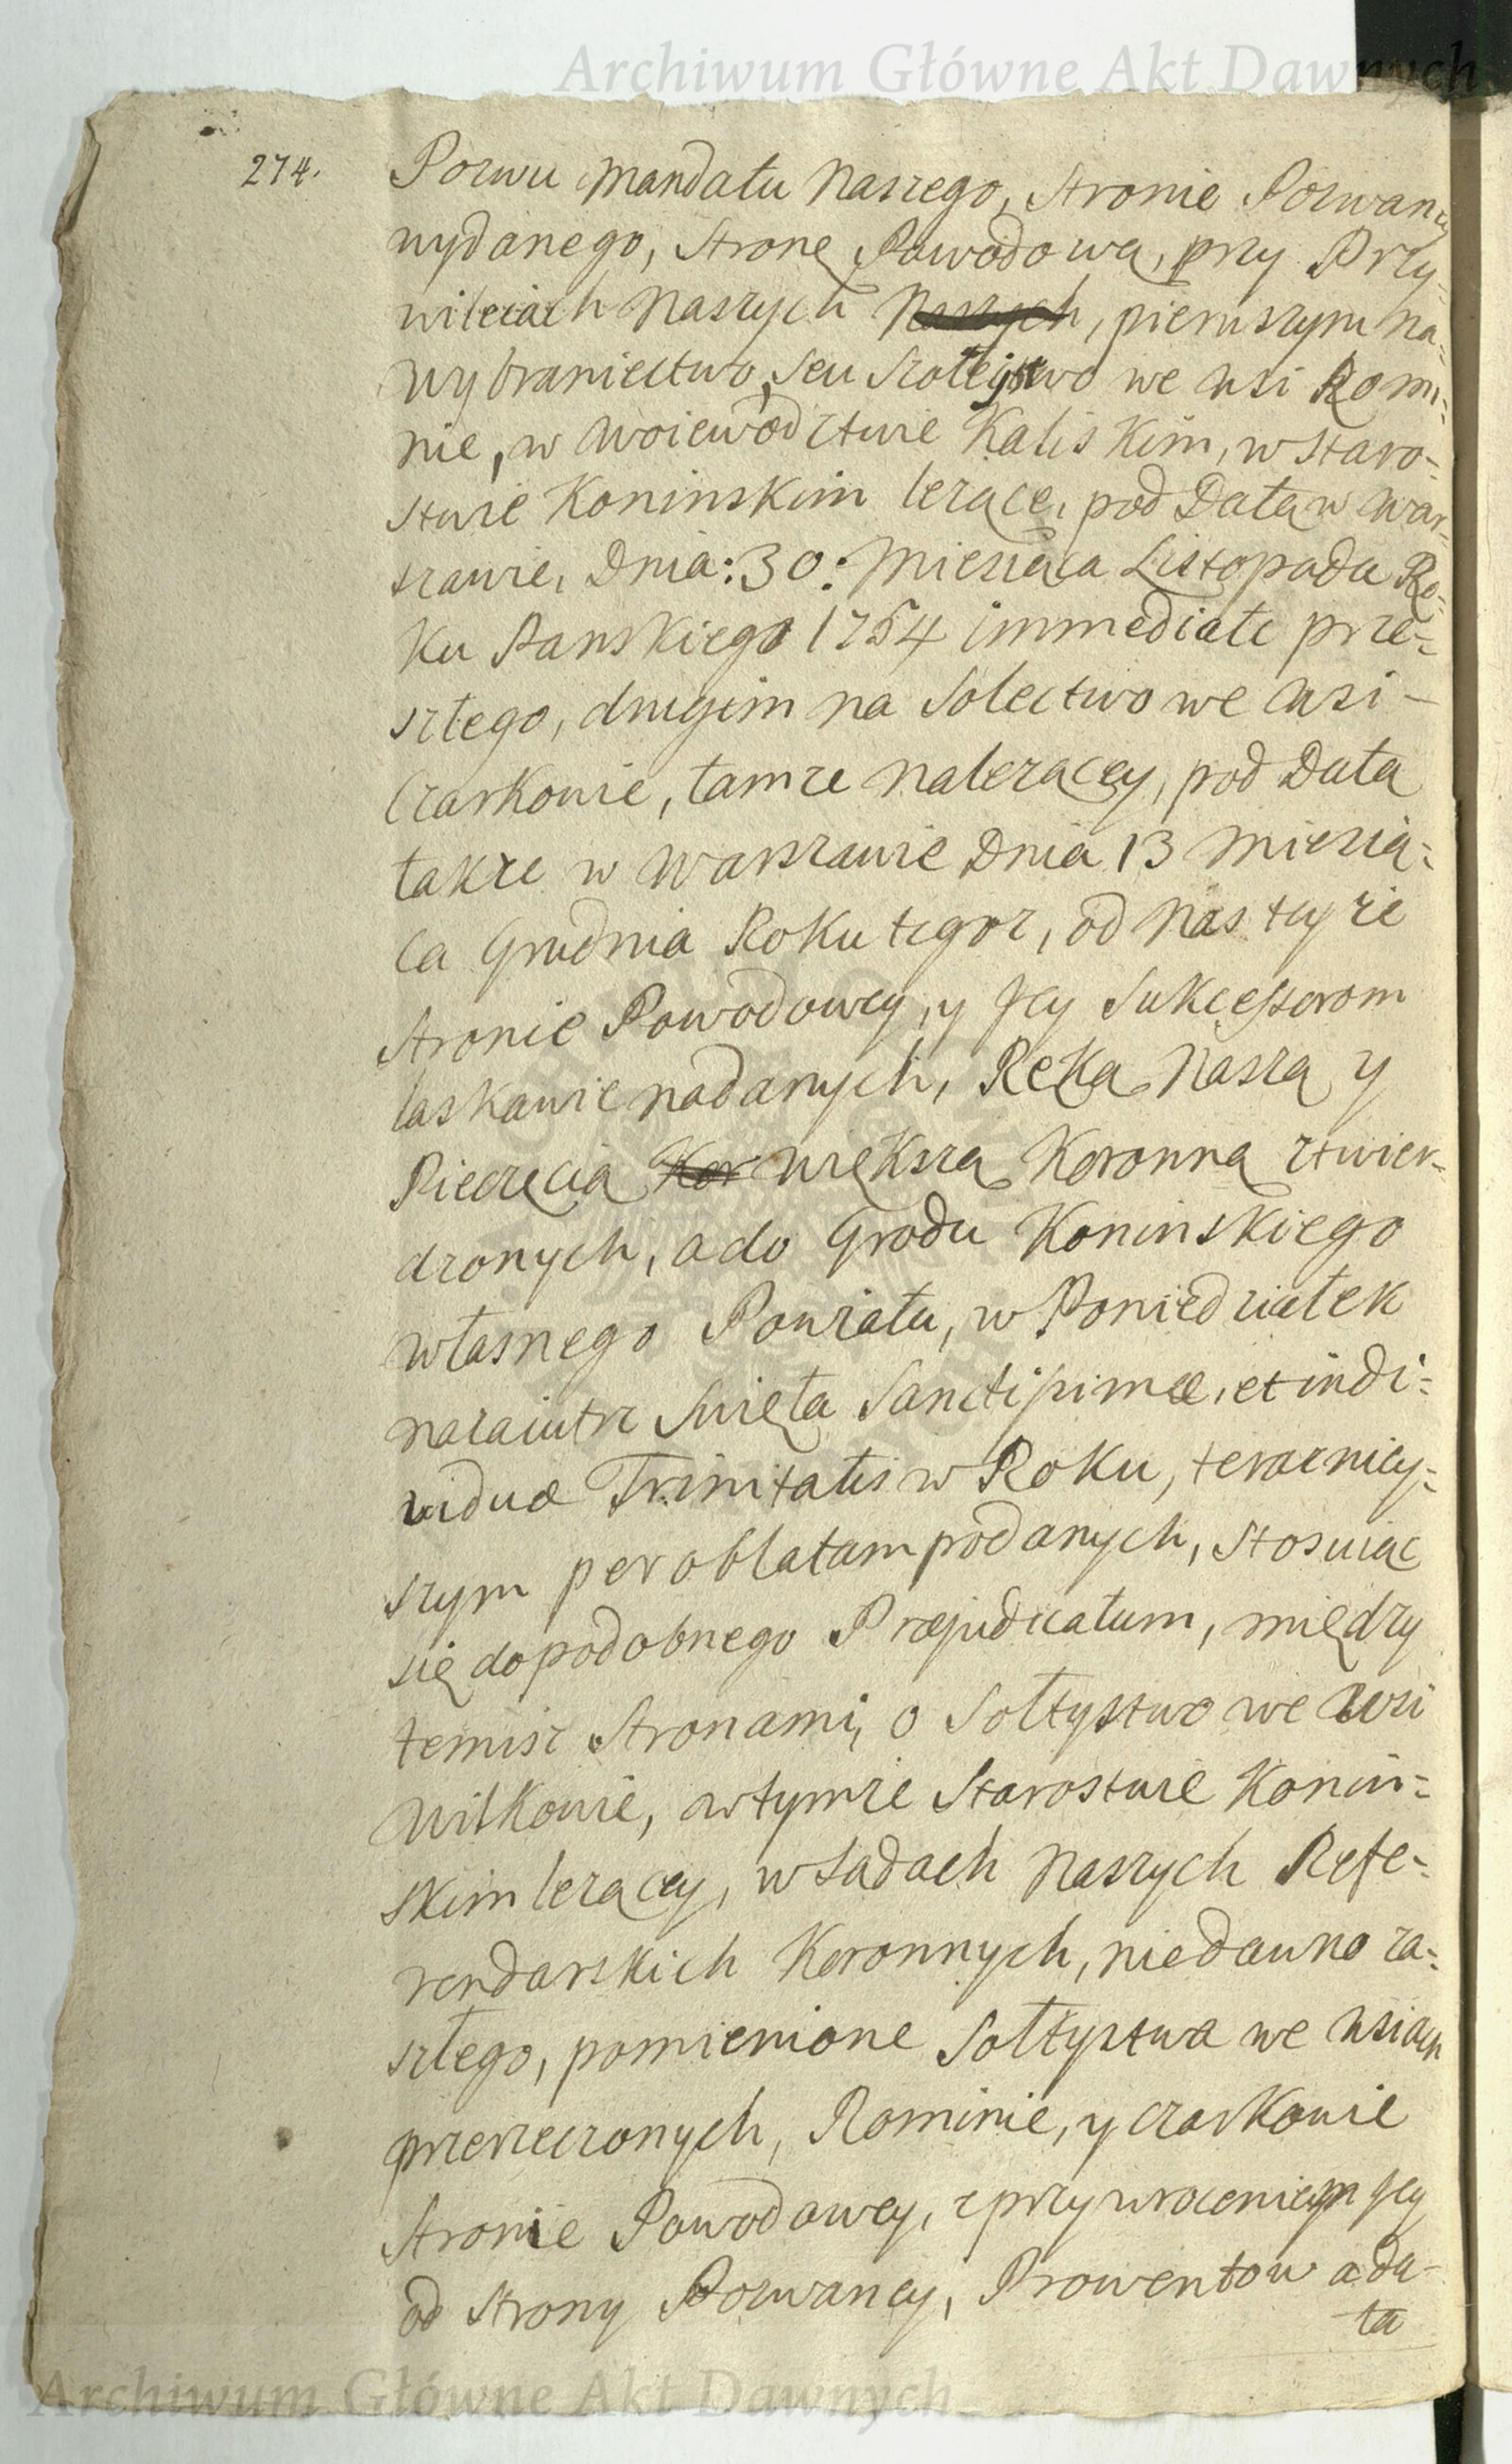 Archiwum Główne Akt Dawnych
274.
Pozwu mandatu Naszego, Stronie Pozwaney
wydanego, Stronę Powodową, przy Przy-
wileiach Naszych Naszych, pierwszym na
Wybraniectwo, seu Szołtystwo we wsi Romi-
nie, w Woiewodztwie Kaliskim, w Staro-
stwie Koninskim leżące, pod Datą w War-
szawie, Dnia: 30: Miesiąca Listopada Ro-
ku Pańskiego 1754 immediate prze-
szłego, drugim na Solectwo we wsi -
Czarkowie, tamże należącey, pod Datą
także w Warszawie Dnia 13 Miesią-
ca Grudnia Roku tegoż, od Nas teyże
Stronie Powodowey, y Jey Sukcessorom
łaskawie nadanych, Ręką Naszą y
Pieczęcią Kor większą Koronną ztwier-
dzonych, a do Grodu Koninskiego
własnego Powiatu, w Poniedziałek
nazaiutrz Swięta Sanctissimæ, et indi-
viduæ Trinitatis w Roku, terazniey-
szym per oblatam podanych, stosuiąc
się do podobnego Præjudicatum, między
temisz Stronami, o Sołtystwo we wsi
Wilkowie, w tymże Starostwie Konin-
skim leżącey, w Sądach Naszych Refe-
rendarskich Koronnych, niedawno za-
szłego, pomienione Sołtystwa we wsiach
przerzeczonych, Rominie, y Czarkowie
Stronie Powodowey, z przywroceniem Jey
od Strony Pozwaney, Prowentow a da-
ta
Archiwum Główne Akt Dawnych